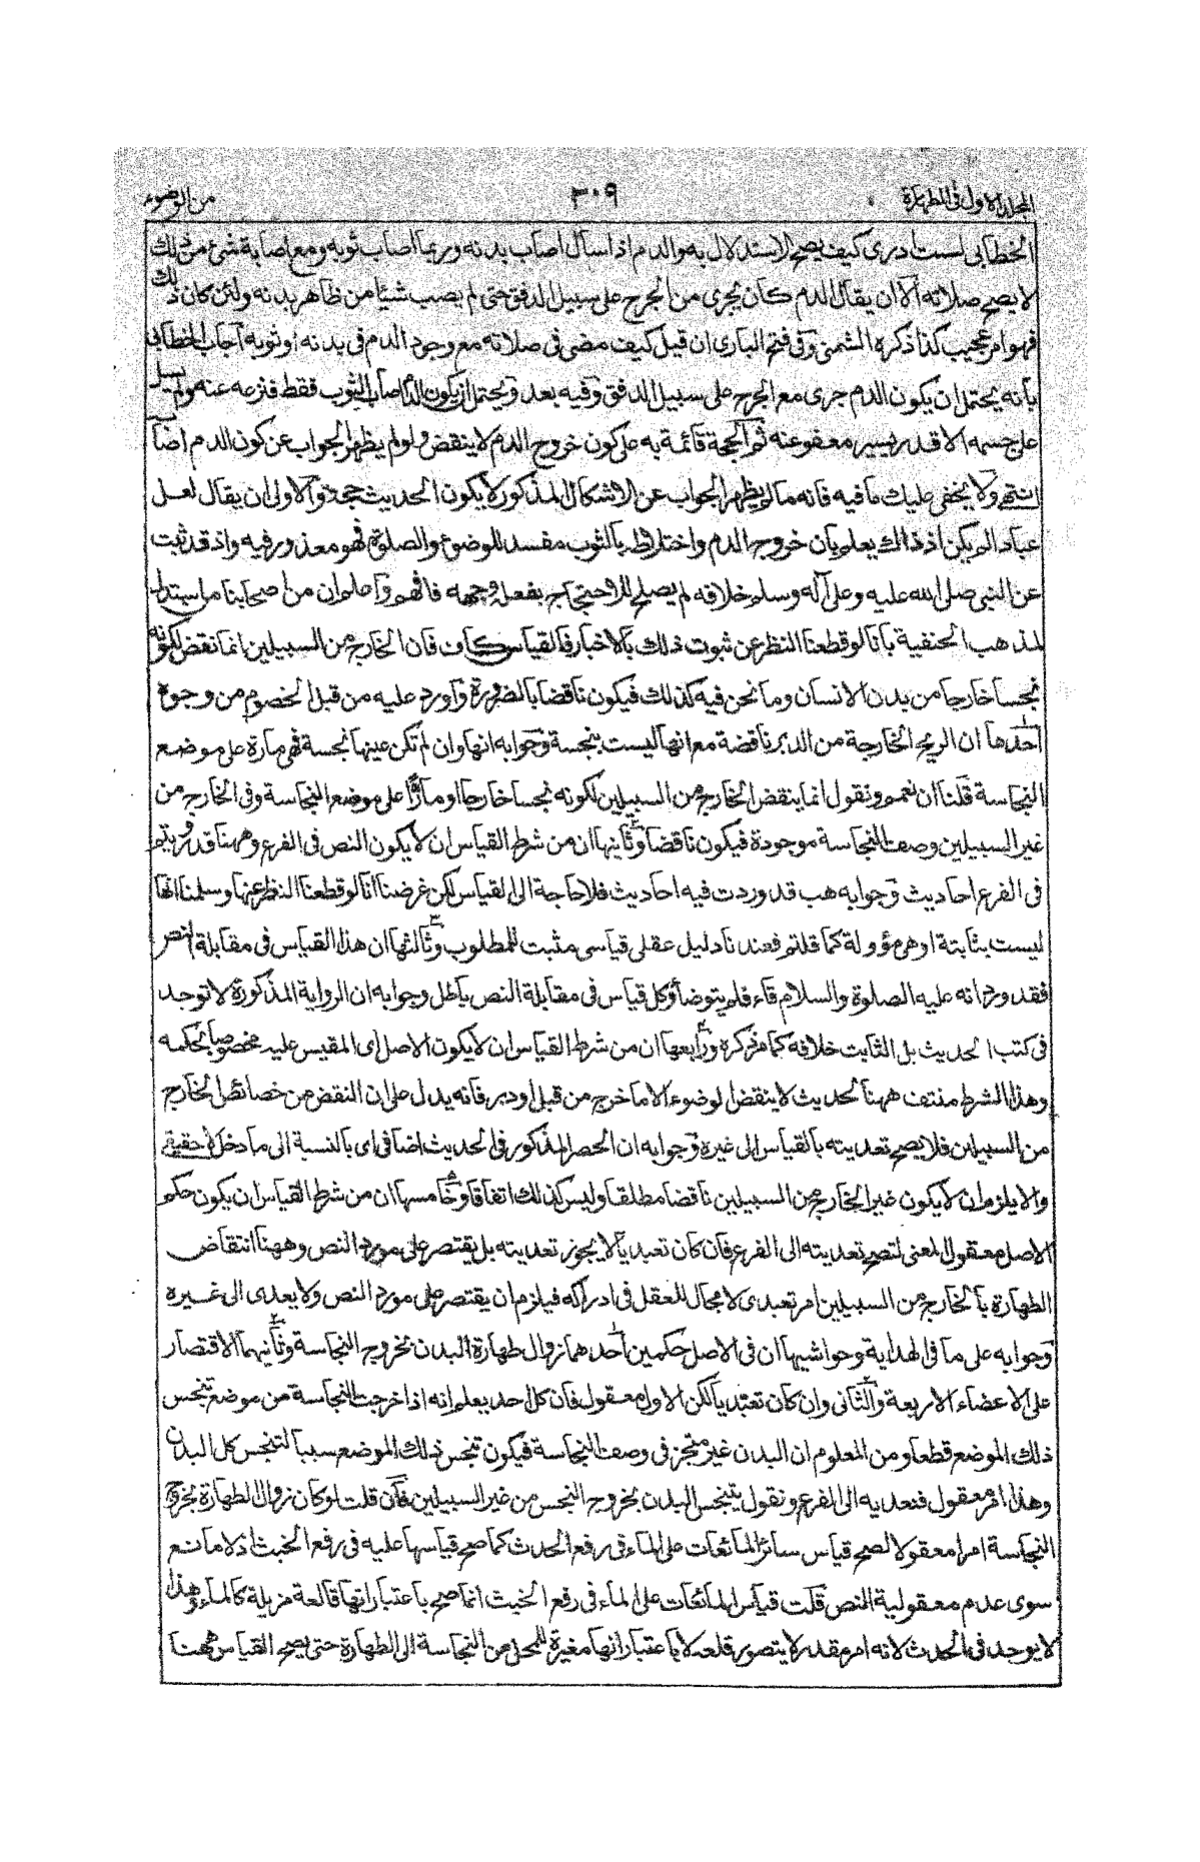 المجلد الاول فى الطهارة ٣٠٩ من الوضوء
الخطابى لست ادرى كيف يصح الاستدلال به والدم اذا سال اصاب بدنه وربما اصاب ثوبه ومع اصابة شئ من ذلك
لا يصح صلاته الا ان يقال الدم كان يجرى من الجرح على سبيل الدفق حتى لم يصب شيئا من ظاهر بدنه ولئن كان ذلك
فهو امر عجيب كذا ذكره الشمنى وفى فتح البارى ان قيل كيف مضى فى صلاته مع وجود الدم فى بدنه او ثوبه اجاب الخطابى
بانه يحتمل ان يكون الدم جرى مع الجرح على سبيل الدفق وفيه بعد ويحتمل ان يكون الدم اصاب الثوب فقط فنزعه عنه ولم يسل
على جسمه الا قدر يسير معفو عنه ثم الحجة قائمة به على كون خروج الدم لا ينقض ولو لم يظهر الجواب عن كون الدم اصابه
انتهى ولا يخفى عليك ما فيه فانه ما لم يظهر الجواب عن الاشكال المذكور لا يكون الحديث حجة والاولى ان يقال لعل
عبادا لم يكن اذ ذالك يعلم بان خروج الدم واختلاطه بالثوب مفسد للوضوء والصلوة فهو معذور فيه واذ قد ثبت
عن النبى صلى الله عليه وعلى آله وسلم خلافه لم يصلح للاحتجاج بفعله وجه فافهم واعلم ان من اصحابنا من استدل
لمذهب الحنفية بانا لو قطعنا النظر عن ثبوت ذلك بالاخبار فالقياس كاف فان الخارج من السبيلين انما نقض لكونه
نجسا خارجا من بدن الانسان وما نحن فيه كذلك فيكون ناقضا بالضرورة واورد عليه من قبل الخصوم من وجوه
احدها ان الريح الخارجة من الدبر ناقضة مع انها ليست بنجسة وجوابه انها وان لم تكن عينها نجسة فهى مارة على موضع
النجاسة قلنا ان نعمم ونقول انما ينقض الخارج من السبيلين لكونه نجسا خارجا او مارا على موضع النجاسة وفى الخارج من
غير السبيلين وصف النجاسة موجودة فيكون ناقضا وثانيها ان من شرط القياس ان لا يكون النص فى الفرع وههنا قد رويتم
فى الفرع احاديث وجوابه هب قد وردت فيه احاديث فلا حاجة الى القياس لكن غرضنا انا لو قطعنا النظر عنها وسلمنا انها
ليست بثابتة او هى مؤولة كما قلتم فعندنا دليل عقلى قياسى مثبت للمطلوب وثالثها ان هذا القياس فى مقابلة النص
فقد ورد انه عليه الصلوة والسلام قاء فلم يتوضأ وكل قياس فى مقابلة النص باطل وجوابه ان الرواية المذكورة لا توجد
فى كتب الحديث بل الثابت خلافه كما مر ذكره ورابعها ان من شرط القياس ان لا يكون الاصل اى المقيس عليه مخصوصا بحكمه
وهذا الشرط منتف ههنا لحديث لا ينقض الوضوء الا ما خرج من قبل او دبر فانه يدل على ان النقض من خصائص الخارج
من السبيلين فلا يصح تعديته بالقياس الى غيره وجوابه ان الحصر المذكور فى الحديث اضافى اى بالنسبة الى ما دخل لا حقيقى
والا يلزم ان لا يكون غير الخارج من السبيلين ناقضا مطلقا وليس كذلك اتفاقا وخامسها ان من شرط القياس ان يكون حكم
الاصل معقول المعنى لتصح تعديته الى الفرع فان كان تعبديا لا يجوز تعديته بل يقتصر على مورد النص وههنا انتقاض
الطهارة بالخارج من السبيلين امر تعبدى لا مجال للعقل فى ادراكه فيلزم ان يقتصر على مورد النص ولا يعدى الى غيره
وجوابه على ما فى الهداية وحواشيها ان فى الاصل حكمين احدهما زوال طهارة البدن بخروج النجاسة وثانيهما الاقتصار
على الاعضاء الاربعة والثانى وان كان تعبديا لكن الاول معقول فان كل احد يعلم انه اذا خرجت النجاسة من موضع تنجس
ذلك الموضع قطعا ومن المعلوم ان البدن غير متجز فى وصف النجاسة فيكون تنجس ذلك الموضع سببا لتنجس كل البدن
وهذا امر معقول فنعديه الى الفرع ونقول يتنجس البدن بخروج النجس من غير السبيلين فان قلت لو كان زوال الطهارة بخروج
النجاسة امرا معقولا لصح قياس سائر المائعات على الماء فى رفع الحدث كما صح قياسها عليه فى رفع الخبث اذ لا مانع
سوى عدم معقولية النص قلت قياس المائعات على الماء فى رفع الخبث انما صح باعتبار انها قالعة مزيلة كالماء وهذا
لا يوجد فى الحدث لانه امر مقدر لا يتصور قلعه لا باعتبار انها مغيرة للمحل من النجاسة الى الطهارة حتى يصح القياس ههنا